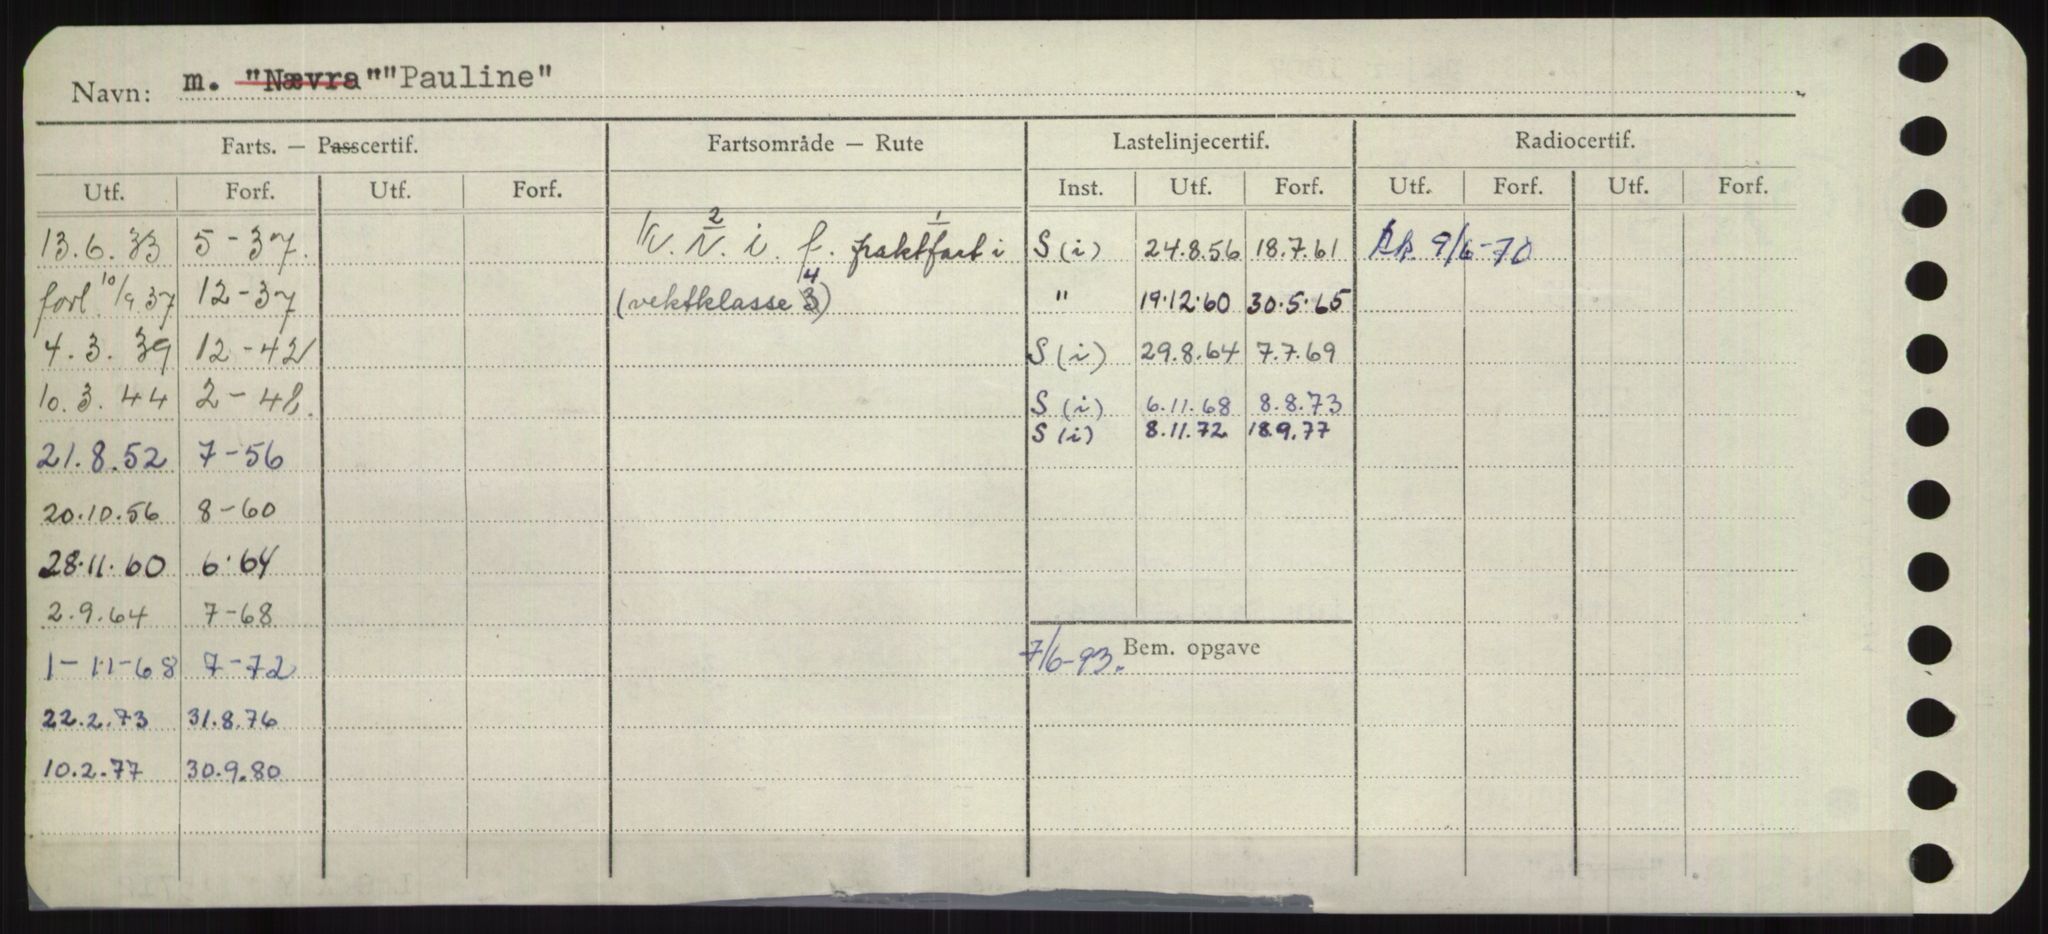 Navn: m. "Nævra" "Pauline"
Farts. — Passcertif. Fartsområde — Rute Lastelinjecertif. Radiocertif.
Utf. Forf. Utf. Forf. Inst. Utf. Forf. Utf. Forf. Utf. Forf.
2 1
13.6.33 5-37. i. f. fraktfart i S (i) 24.8.56 18.7.61 9/6-70
forl. 10/9.37 12-37 (vektklasse 3 4) " 19.12.60 30.5.65
4.3.39 12-42 S (i) 29.8.64 7.7.69
10.3.44 2-48. S (i) 6.11.68 8.8.73
S (i) 8.11.72 18.9.77
21.8.52 7-56
20.10.56 8-60
28.11.60 6.64
2.9.64 7-68
7/6-93. Bem. opgave
1-11-68 7-72
22.2.73 31.8.76
10.2.77 30.9.80